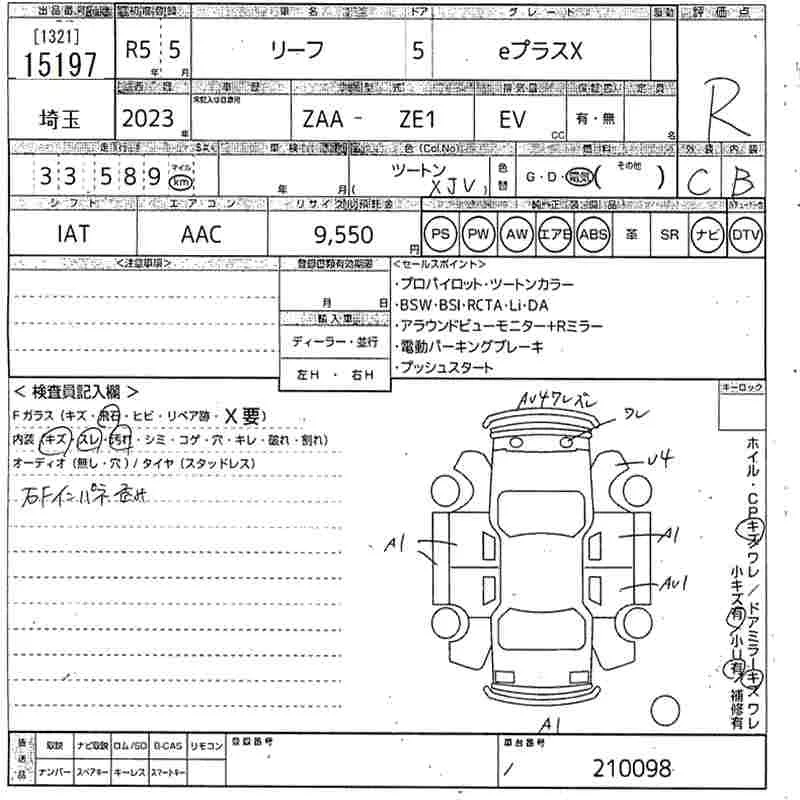 出品番号 初度登録 車名 ドア グレード 駆動 評価点
[1321]
15197 R5 5 リーフ 5 eプラスX R
年 月
車歴 型式 排気量 定員
埼玉 2023 年 ZAA - ZE1 EV CC 有・無 名
走行 車検 色(Col.No) 燃料 外装 内装
33,589 マイル km 年 月 ( ツートン XJV ) 色替 G・D・電気( その他 ) C B
シフト エアコン リサイクル預託金 純正装備品
IAT AAC 9,550 円 PS PW AW エアB ABS 革 SR ナビ DTV
<注意事項> 登録書類有効期限 <セールスポイント>
月 日
・プロパイロット・ツートンカラー
・BSW・BSI・RCTA・Li・DA
輸入車
・アラウンドビューモニター+Rミラー
ディーラー・並行
・電動パーキングブレーキ
左H ・ 右H
・プッシュスタート
< 検査員記入欄 > キーロック
Fガラス (キズ・飛石・ヒビ・リペア跡・X要)
内装 (キズ・スレ・汚れ・シミ・コゲ・穴・キレ・破れ・割れ)
オーディオ (無し・穴) / タイヤ (スタッドレス)
AU4ワレズレ
ワレ
U4
A1
A1
AU1
A1
ホイル・CPキズワレ/ドアミラーキズワレ
小キズ有/小U有/補修有
取説 ナビ取説 ロム/SD B-CAS リモコン 登録番号 車台番号
ナンバー スペアキー キーレス スマートキー / 210098